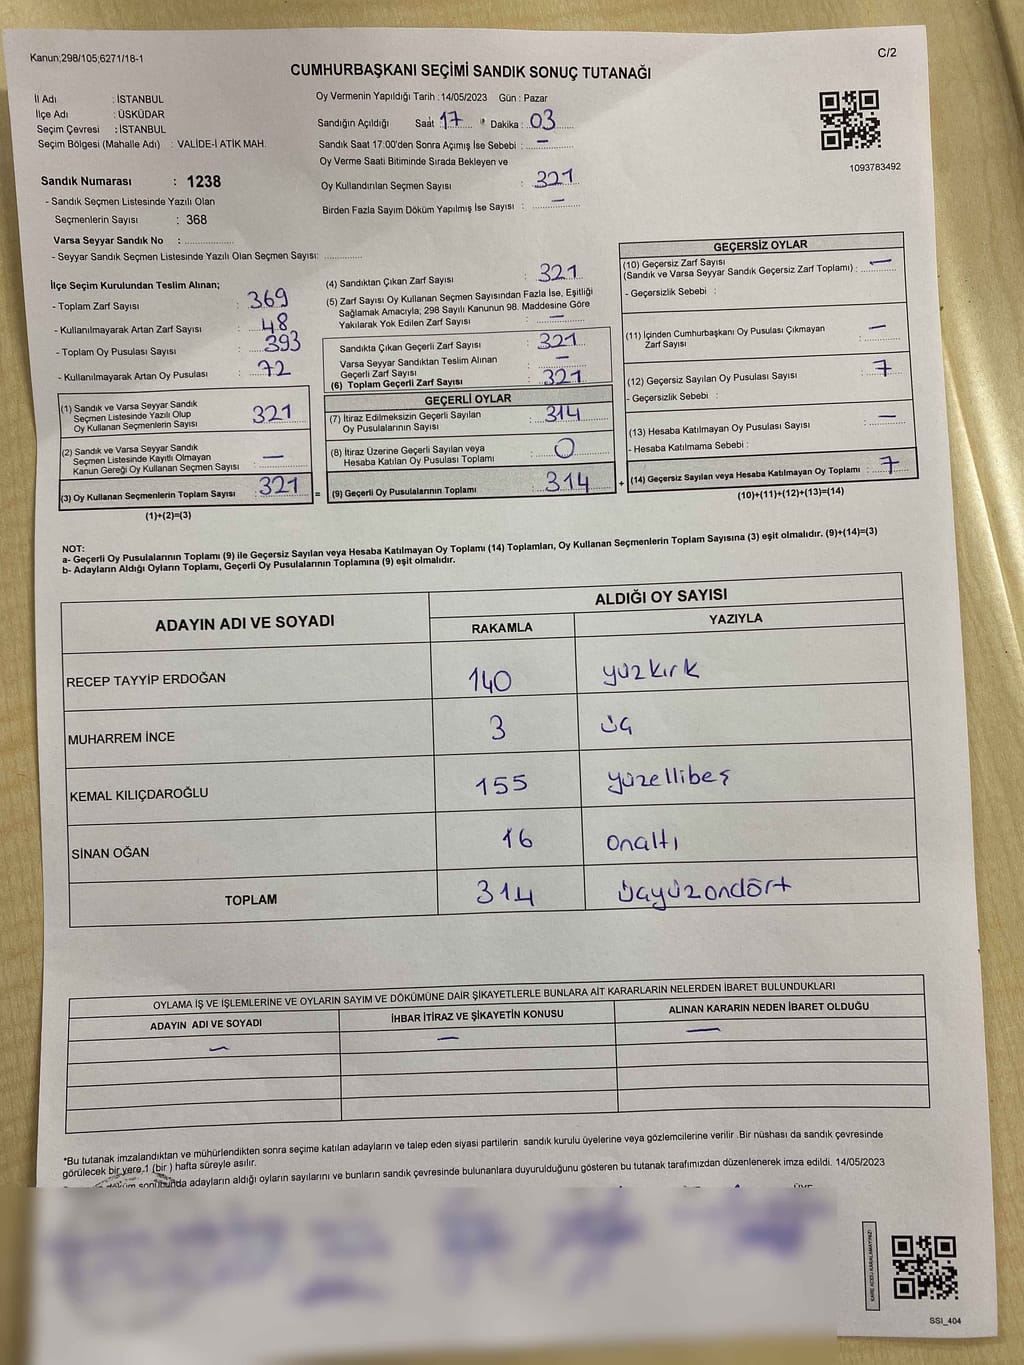 Kanun;298/105;6271/18-1
C/2
CUMHURBAŞKANI SEÇİMİ SANDIK SONUÇ TUTANAĞI
İl Adı : İSTANBUL
İlçe Adı : ÜSKÜDAR
Seçim Çevresi : İSTANBUL
Seçim Bölgesi (Mahalle Adı) : VALİDE-İ ATİK MAH.
Sandık Numarası : 1238
- Sandık Seçmen Listesinde Yazılı Olan
Seçmenlerin Sayısı : 368
Varsa Seyyar Sandık No :
- Seyyar Sandık Seçmen Listesinde Yazılı Olan Seçmen Sayısı:
Oy Vermenin Yapıldığı Tarih : 14/05/2023 Gün : Pazar
Sandığın Açıldığı Saat : 17 Dakika : 03
Sandık Saat 17:00'den Sonra Açımış İse Sebebi : —
Oy Verme Saati Bitiminde Sırada Bekleyen ve
Oy Kullandırılan Seçmen Sayısı : 321
Birden Fazla Sayım Döküm Yapılmış İse Sayısı : —
1093783492
İlçe Seçim Kurulundan Teslim Alınan;
- Toplam Zarf Sayısı : 369
- Kullanılmayarak Artan Zarf Sayısı : 48
- Toplam Oy Pusulası Sayısı : 393
- Kullanılmayarak Artan Oy Pusulası : 72
(1) Sandık ve Varsa Seyyar Sandık
Seçmen Listesinde Yazılı Olup
Oy Kullanan Seçmenlerin Sayısı : 321
(2) Sandık ve Varsa Seyyar Sandık
Seçmen Listesinde Kayıtlı Olmayan
Kanun Gereği Oy Kullanan Seçmen Sayısı : —
(3) Oy Kullanan Seçmenlerin Toplam Sayısı : 321
(1)+(2)=(3)
=
(4) Sandıktan Çıkan Zarf Sayısı : 321
(5) Zarf Sayısı Oy Kullanan Seçmen Sayısından Fazla İse, Eşitliği
Sağlamak Amacıyla; 298 Sayılı Kanunun 98. Maddesine Göre
Yakılarak Yok Edilen Zarf Sayısı : —
Sandıkta Çıkan Geçerli Zarf Sayısı : 321
Varsa Seyyar Sandıktan Teslim Alınan
Geçerli Zarf Sayısı : —
(6) Toplam Geçerli Zarf Sayısı : 321
GEÇERLİ OYLAR
(7) İtiraz Edilmeksizin Geçerli Sayılan
Oy Pusulalarının Sayısı : 314
(8) İtiraz Üzerine Geçerli Sayılan veya
Hesaba Katılan Oy Pusulası Toplamı : 0
(9) Geçerli Oy Pusulalarının Toplamı : 314
+
GEÇERSİZ OYLAR
(10) Geçersiz Zarf Sayısı
(Sandık ve Varsa Seyyar Sandık Geçersiz Zarf Toplamı) : —
- Geçersizlik Sebebi :
(11) İçinden Cumhurbaşkanı Oy Pusulası Çıkmayan
Zarf Sayısı : —
(12) Geçersiz Sayılan Oy Pusulası Sayısı : 7
- Geçersizlik Sebebi :
(13) Hesaba Katılmayan Oy Pusulası Sayısı : —
- Hesaba Katılmama Sebebi :
(14) Geçersiz Sayılan veya Hesaba Katılmayan Oy Toplamı : 7
(10)+(11)+(12)+(13)=(14)
NOT:
a- Geçerli Oy Pusulalarının Toplamı (9) ile Geçersiz Sayılan veya Hesaba Katılmayan Oy Toplamı (14) Toplamları, Oy Kullanan Seçmenlerin Toplam Sayısına (3) eşit olmalıdır. (9)+(14)=(3)
b- Adayların Aldığı Oyların Toplamı, Geçerli Oy Pusulalarının Toplamına (9) eşit olmalıdır.
ADAYIN ADI VE SOYADI
ALDIĞI OY SAYISI
RAKAMLA YAZIYLA
RECEP TAYYİP ERDOĞAN 140 yüzkırk
MUHARREM İNCE 3 üç
KEMAL KILIÇDAROĞLU 155 yüzellibeş
SİNAN OĞAN 16 onaltı
TOPLAM 314 üçyüzondört
OYLAMA İŞ VE İŞLEMLERİNE VE OYLARIN SAYIM VE DÖKÜMÜNE DAİR ŞİKAYETLERLE BUNLARA AİT KARARLARIN NELERDEN İBARET BULUNDUKLARI
ADAYIN ADI VE SOYADI İHBAR İTİRAZ VE ŞİKAYETİN KONUSU ALINAN KARARIN NEDEN İBARET OLDUĞU
— — —
*Bu tutanak imzalandıktan ve mühürlendikten sonra seçime katılan adayların ve talep eden siyasi partilerin sandık kurulu üyelerine veya gözlemcilerine verilir .Bir nüshası da sandık çevresinde
görülecek bir yere 1 (bir ) hafta süreyle asılır.
döküm sonubunda adayların aldığı oyların sayılarını ve bunların sandık çevresinde bulunanlara duyurulduğunu gösteren bu tutanak tarafımızdan düzenlenerek imza edildi. 14/05/2023
ÜYE
KARE KODU KARALAMAYINIZ!
SSI_404